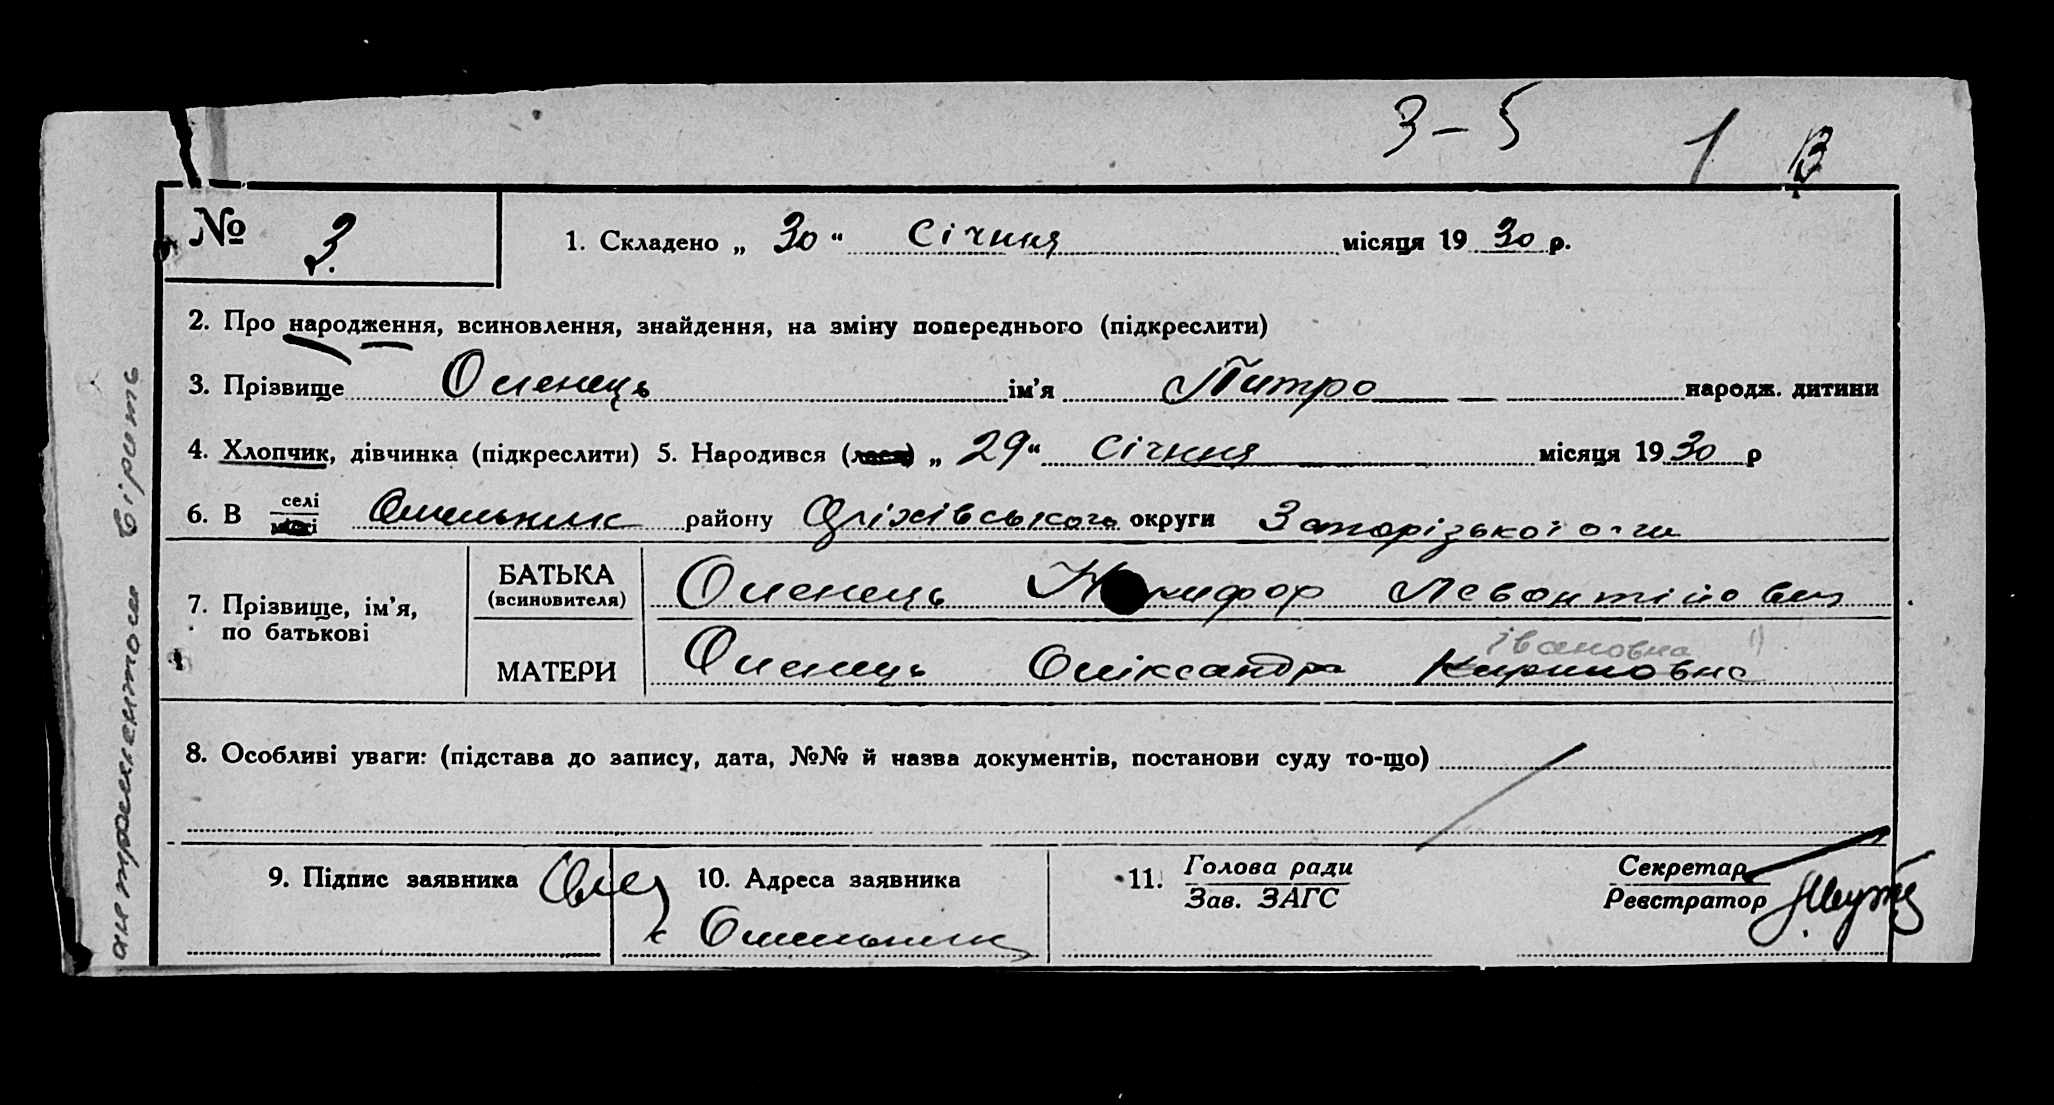 3 – 5 1 В
№ 3. 1. Складено „ 30 “ січння місяця 19 30 р.
2. Про народження, всиновлення, знайдення, на зміну попереднього (підкреслити)
3. Прізвище Оленець ім’я Питро народж. дитини
4. Хлопчик, дівчинка (підкреслити) 5. Народився (лася) „ 29 “ січння місяця 19 30 р
6. В селі Омельник району Оріхівського округи Запорізької о-ги
місті
7. Прізвище, ім’я, по батькові
БАТЬКА (всиновителя) Оленець Никифор Левонтійович
МАТЕРИ Оленець Оліксандра Кириловна
івановна
8. Особливі уваги: (підстава до запису, дата, №№ й назва документів, постанови суду то-що)
9. Підпис заявника 10. Адреса заявника 11. Голова ради Секретар
Зав. ЗАГС Реєстратор
с Омельник
вірить